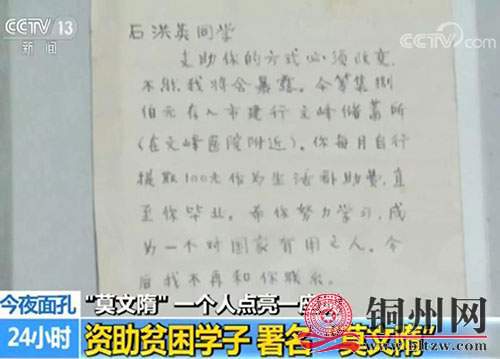 CCTV 13
新闻
CCTV.com
石洪英同学
支助你的方式必须改变,
不然我将会暴露。今筹集捌
佰元存入市建行文峰储蓄所
(在文峰医院附近)。你每月自行
提取100元作为生活补助费,直
至你毕业。希你努力学习,成
为一个对国家有用之人。今
后我不再和你联系。
今夜面孔
“莫文隋”一个人点亮一
24小时
资助贫困学子 署名“莫文隋”
铜州网